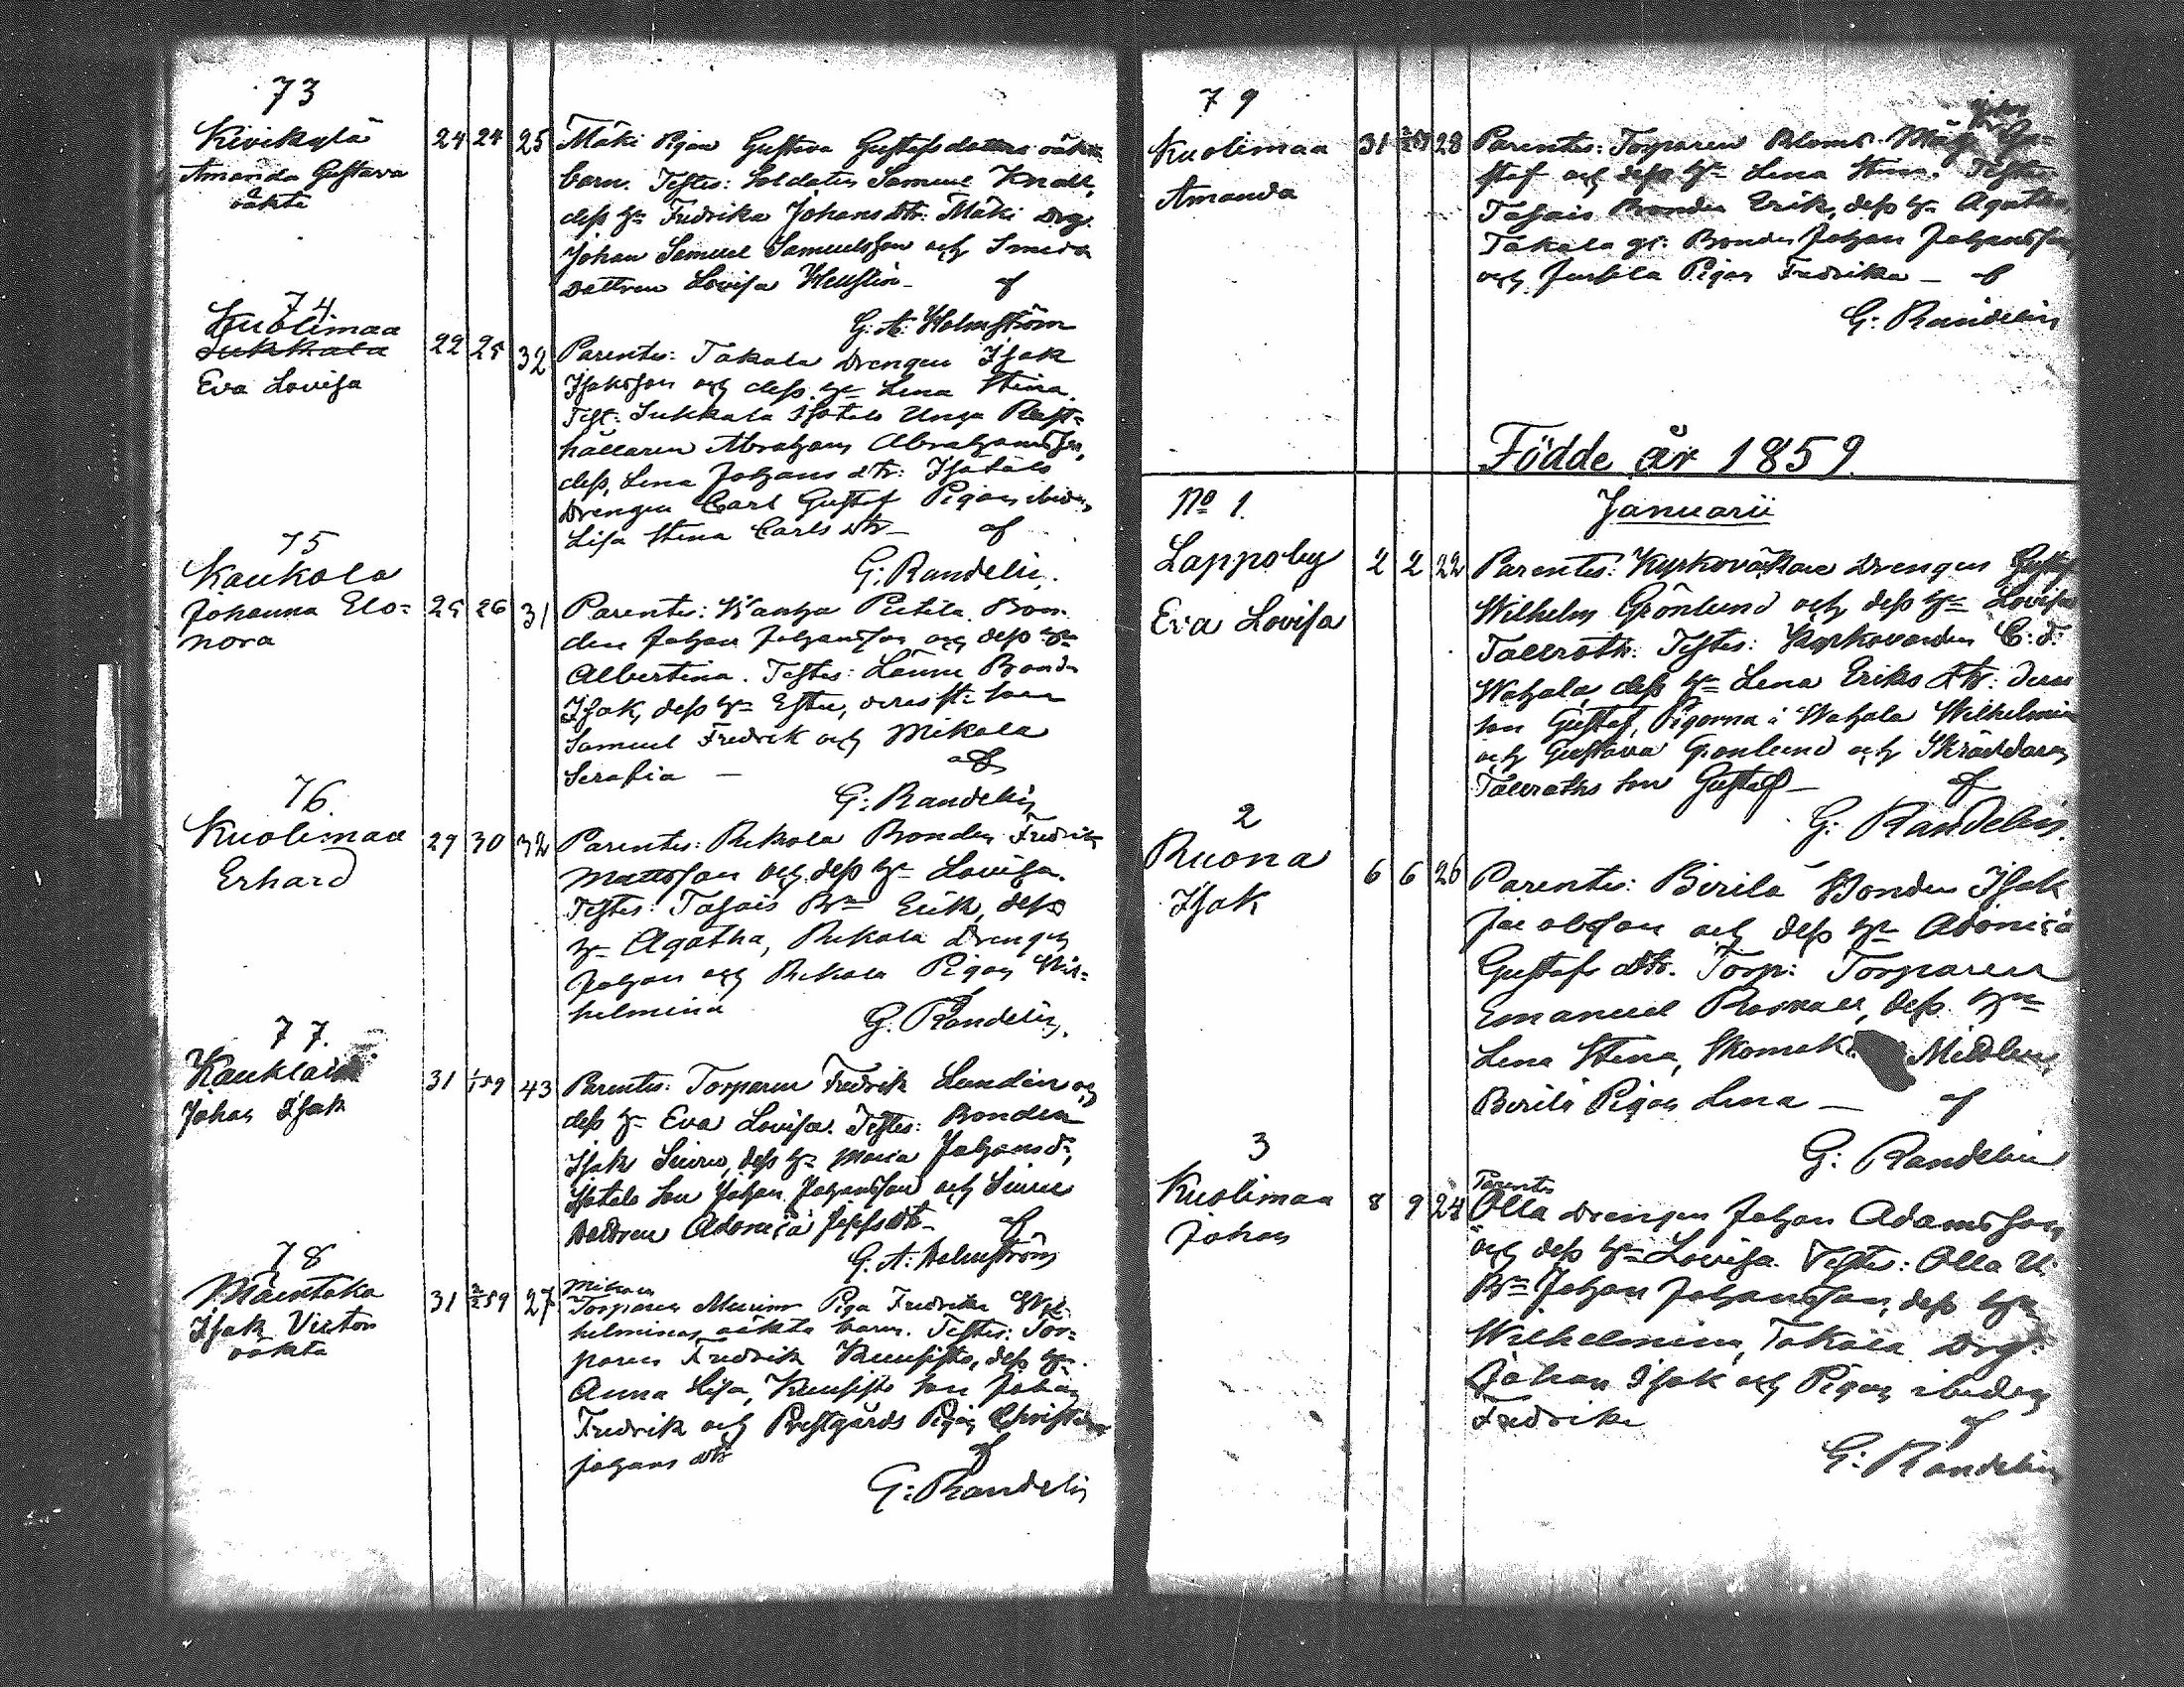 73
Kivikylä 24 24 25 Mäki Pigan Gustava Gustafsdotters oäkta
Amanda Gustava barn. Testes: Soldaten Samuel Knall,
oäkta dess h:u Fredrika Johans dtr: Mäki Drg.
Johan Samuel Samuelsson och Smeds
Dottren Lovisa Hellstén – af
G: A: Holmström
74
Kuolimaa
Sukkala 22 25 32 Parentes: Takala Drengen Isak
Eva Lovisa Isaksson och dess h:u Lena Stina.
Test: Sukkala Isotalo Unga Rust=
hållaren Abraham Abrahamsson,
dess, Lena Johans dtr: Isotalo
Drengen Carl Gustaf Pigan ibidem
Lisa Stina Carls dtr – af
G: Randelin.
75
Kaukola
Johanna Elo= 25 26 31 Parentes: Wanha Pietilä Bon=
nora den Johan Johansson och dess h:u
Albertina. Testes: Bonden
Isak, dess h:u Ester, deras st: son
Samuel Fredrik och Mikola
Serafia – af
G: Randelin
76.
Kuolimaa 29 30 32 Parentes: Rekola Bonden Fredrik
Erhard Mattsson och dess h:u Lovisa.
Testes: Tasais B:n Erik, dess
h:u Agatha, Rekola Drengen
Johan och Rekola Pigan Wil=
helmina
G. Randelin.
77.
31 1/1 59 43 Parentes: Torparen Fredrik Lundin och
Johan Isak dess h:u Eva Lovisa. Testes: Bonden
Isak dess h:u Maria Johans d:r,
Isotalo Son Johan Johansson och
Dottren – af
G: A: Holmström
78
Mäentaka 31 2/2 59 27 Torparen Piga Fredrika Wil=
Isak Victor helminas oäkta barn. Testes: Tor=
oäkta paren Fredrik Kuusisto, dess h:u
Anna Lisa, Kuusisto Son Johan
Fredrik och Prestgårds Pigan Christina
Johans dtr af
G: Randelin
79
Kuolimaa 31 2/1 59 28 Parentes: Torparen Bloms Måg Gu=
Amanda staf och dess h:u Lena Stina. Testes
Tasais Bonden Erik, dess h:u Agatha,
Takala gl: Bonden Johan Johansson
och Pigan Fredrika – af
G: Randelin
Födde år 1859.
No 1. Januarii
Lappoby 2 2 22 Parentes: Kyrkoväktare Drengen Gustaf
Eva Lovisa Wilhelm Grönlund och dess h:u Lovisa
Tallroth. Testes: Kyrkovärden C: F:
Wahala, dess h:u Lena Eriks dtr: deras
son Gustaf, Pigorna i Wahala Wilhelmina
och Gustava Grönlund och Skräddaren
Tallroths Son Gustaf – af
G: Randelin.
2
Ruona 6 6 26 Parentes: Berilä Bonden Isak
Isak Jacobsson och dess h:u
Gustafs dtr. Torp: Torparen
Emanuel dess h:u
Lena Stina, Skomak.
Berilä Pigan Lena – af
G: Randelin
3
Kuolimaa 8 9 24 Parentes
Johan Olla Drengen Johan Adamsson
och dess h:u Lovisa. Testes: Olla U:
B:n Johan Johansson, dess h:u
Wilhelmina, Takala Drg:
Johan Isak och Pigan ibidem
Fredrika af
G: Randelin